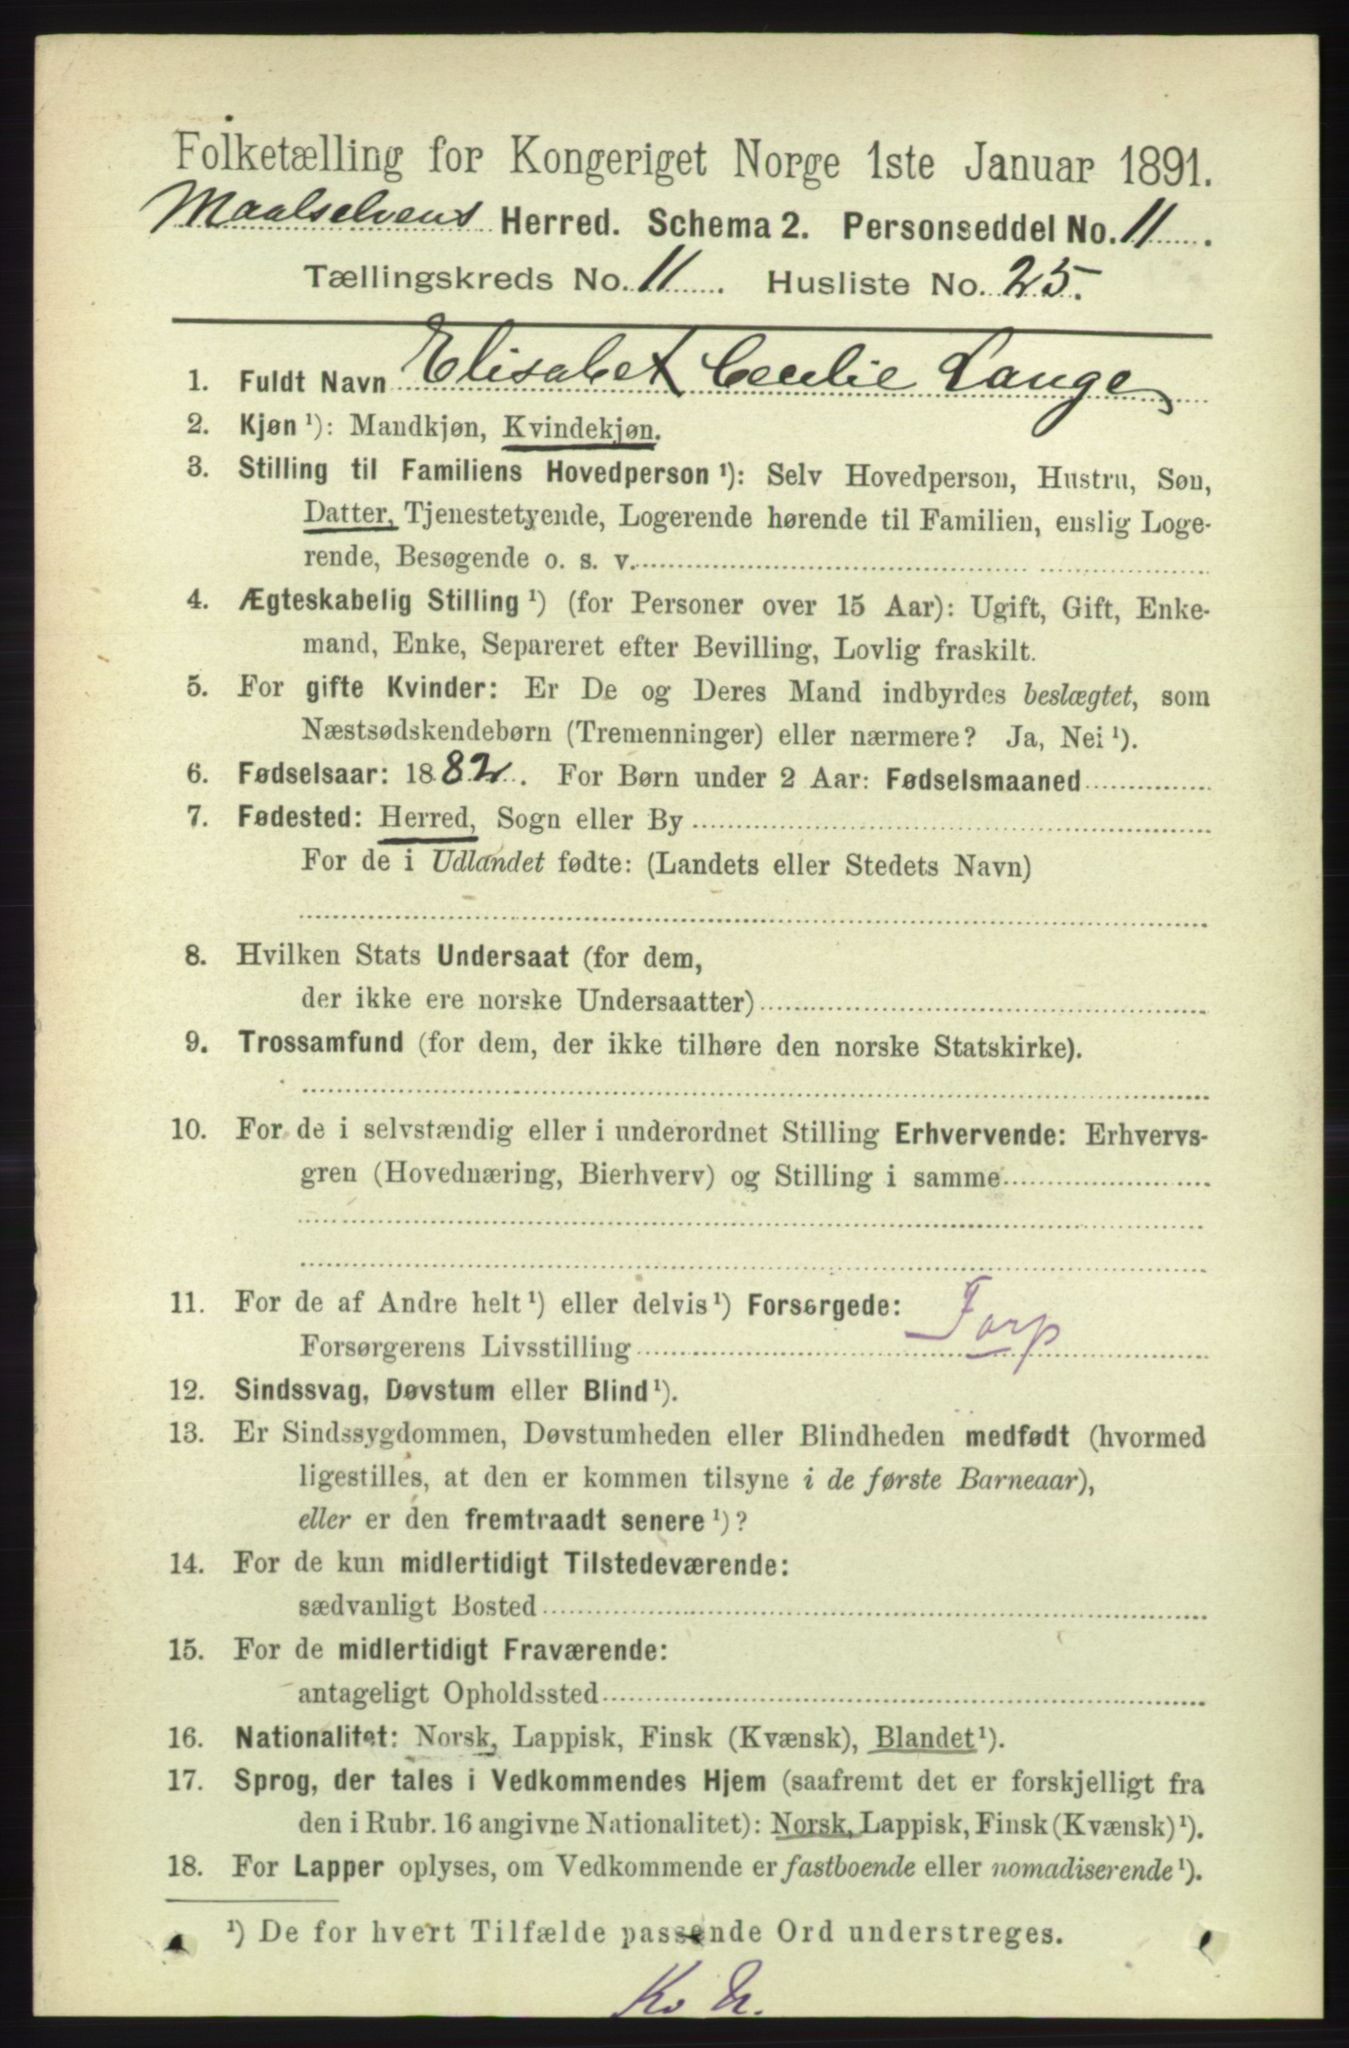 Folketælling for Kongeriget Norge 1ste Januar 1891.
Maalselvens Herred. Schema 2. Personseddel No. 11
Tællingskreds No. 11. Husliste No. 25.
1. Fuldt Navn Elisabet Cecilie Lange
2. Kjøn ¹): Mandkjøn, Kvindekjøn.
3. Stilling til Familiens Hovedperson ¹): Selv Hovedperson, Hustru, Søn,
Datter, Tjenestetyende, Logerende hørende til Familien, enslig Loge-
rende, Besøgende o. s. v.
4. Ægteskabelig Stilling ¹) (for Personer over 15 Aar): Ugift, Gift, Enke-
mand, Enke, Separeret efter Bevilling, Lovlig fraskilt.
5. For gifte Kvinder: Er De og Deres Mand indbyrdes beslægtet, som
Næstsødskendebørn (Tremenninger) eller nærmere? Ja, Nei ¹).
6. Fødselsaar: 1882. For Børn under 2 Aar: Fødselsmaaned
7. Fødested: Herred, Sogn eller By
For de i Udlandet fødte: (Landets eller Stedets Navn)
8. Hvilken Stats Undersaat (for dem,
der ikke ere norske Undersaatter)
9. Trossamfund (for dem, der ikke tilhøre den norske Statskirke).
10. For de i selvstændig eller i underordnet Stilling Erhvervende: Erhvervs-
gren (Hovednæring, Bierhverv) og Stilling i samme
11. For de af Andre helt ¹) eller delvis ¹) Forsørgede:
Forsørgerens Livsstilling Forp
12. Sindssvag, Døvstum eller Blind ¹).
13. Er Sindssygdommen, Døvstumheden eller Blindheden medfødt (hvormed
ligestilles, at den er kommen tilsyne i de første Barneaar),
eller er den fremtraadt senere ¹)?
14. For de kun midlertidigt Tilstedeværende:
sædvanligt Bosted
15. For de midlertidigt Fraværende:
antageligt Opholdssted
16. Nationalitet: Norsk, Lappisk, Finsk (Kvænsk), Blandet ¹).
17. Sprog, der tales i Vedkommendes Hjem (saafremt det er forskjelligt fra
den i Rubr. 16 angivne Nationalitet): Norsk, Lappisk, Finsk (Kvænsk) ¹).
18. For Lapper oplyses, om Vedkommende er fastboende eller nomadiserende ¹).
¹) De for hvert Tilfælde passende Ord understreges.
Kv N.